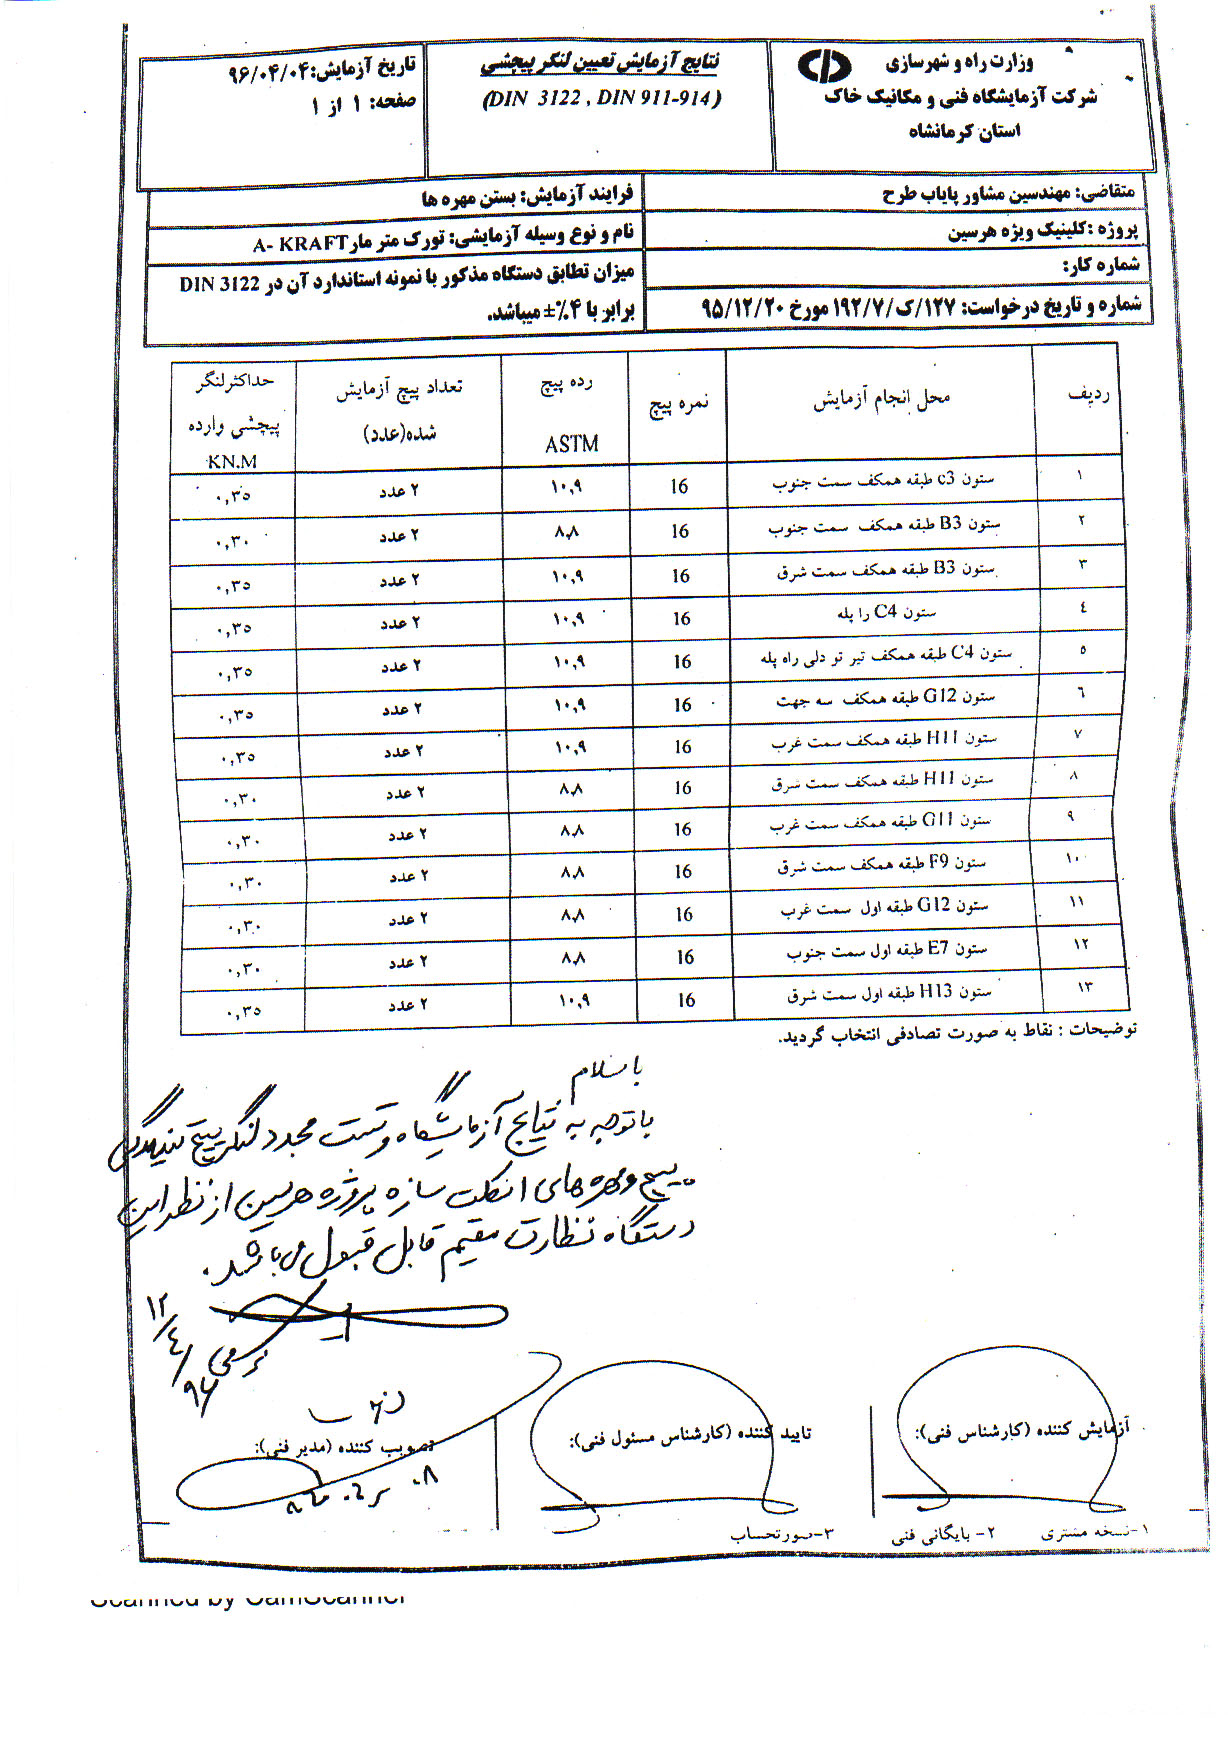 وزارت راه و شهرسازی
شرکت آزمایشگاه فنی و مکانیک خاک
استان کرمانشاه
نتایج آزمایش تعیین لنگر پیچشی
(DIN 3122 , DIN 911-914)
تاریخ آزمایش: ۹۶/۰۴/۰۴
صفحه: ۱ از ۱
متقاضی: مهندسین مشاور پایاب طرح
پروژه :کلینیک ویژه هرسین
شماره کار:
شماره و تاریخ درخواست: ۱۲۷/ک/۱۹۲/۷ مورخ ۹۵/۱۲/۲۰
فرایند آزمایش: بستن مهره ها
نام و نوع وسیله آزمایشی: تورک متر مار A- KRAFT
میزان تطابق دستگاه مذکور با نمونه استاندارد آن در DIN 3122
برابر با ۴٪± میباشد.
ردیف | محل انجام آزمایش | نمره پیچ | رده پیچ ASTM | تعداد پیچ آزمایش شده(عدد) | حداکثر لنگر پیچشی وارده KN.M
۱ | ستون c3 طبقه همکف سمت جنوب | 16 | ۱۰,۹ | ۲ عدد | ۰,۳۵
۲ | ستون B3 طبقه همکف سمت جنوب | 16 | ۸,۸ | ۲ عدد | ۰,۳۰
۳ | ستون B3 طبقه همکف سمت شرق | 16 | ۱۰,۹ | ۲ عدد | ۰,۳۵
٤ | ستون C4 را پله | 16 | ۱۰,۹ | ۲ عدد | ۰,۳۵
۵ | ستون C4 طبقه همکف تیر تو دلی راه پله | 16 | ۱۰,۹ | ۲ عدد | ۰,۳۵
٦ | ستون G12 طبقه همکف سه جهت | 16 | ۱۰,۹ | ۲ عدد | ۰,۳۵
۷ | ستون H11 طبقه همکف سمت غرب | 16 | ۱۰,۹ | ۲ عدد | ۰,۳۵
۸ | ستون H11 طبقه همکف سمت شرق | 16 | ۸,۸ | ۲ عدد | ۰,۳۰
۹ | ستون G11 طبقه همکف سمت غرب | 16 | ۸,۸ | ۲ عدد | ۰,۳۰
۱۰ | ستون F9 طبقه همکف سمت شرق | 16 | ۸,۸ | ۲ عدد | ۰,۳۰
۱۱ | ستون G12 طبقه اول سمت غرب | 16 | ۸,۸ | ۲ عدد | ۰,۳۰
۱۲ | ستون E7 طبقه اول سمت جنوب | 16 | ۸,۸ | ۲ عدد | ۰,۳۰
۱۳ | ستون H13 طبقه اول سمت شرق | 16 | ۱۰,۹ | ۲ عدد | ۰,۳۵
توضیحات : نقاط به صورت تصادفی انتخاب گردید.
با سلام
با توجه به نتایج آزمایشگاه و تست مجدد لنگر پیچ تنیدگی
پیچ و مهره های اسکلت سازه پروژه هرسین از نظر این
دستگاه نظارت مقیم قابل قبول می باشد.
۱۲/٤/۹۶
آزمایش کننده (کارشناس فنی):
تایید کننده (کارشناس مسئول فنی):
تصویب کننده (مدیر فنی):
۱-نسخه مشتری ۲- بایگانی فنی ۳-صورتحساب
Scanned by CamScanner